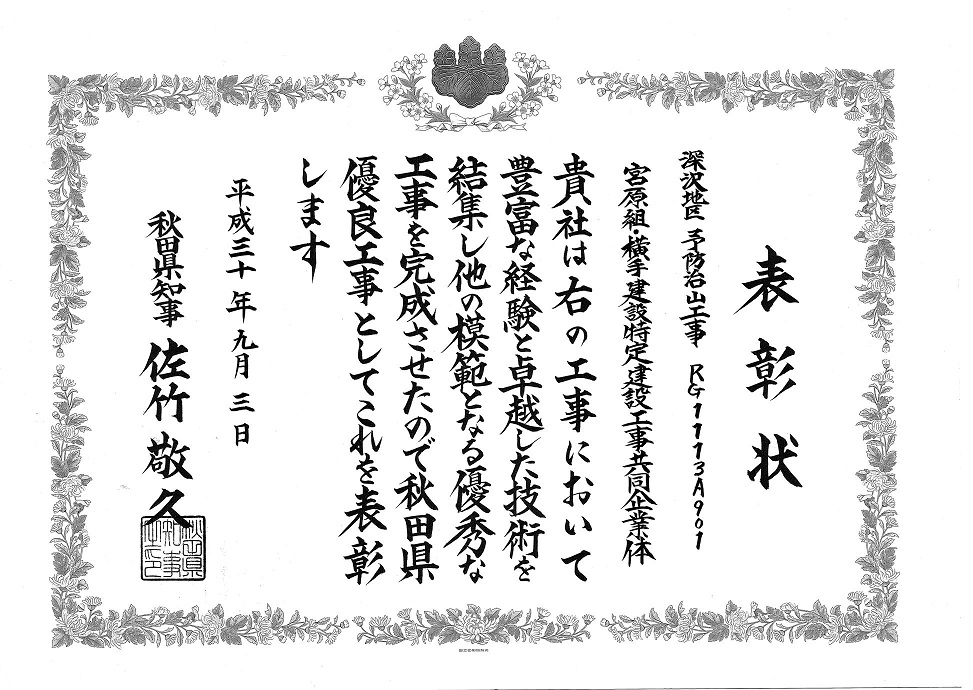 表彰状
深沢地区 予防治山工事 RG1113A901
宮原組・横手建設特定建設工事共同企業体
貴社は右の工事において
豊富な経験と卓越した技術を
結集し他の模範となる優秀な
工事を完成させたので秋田県
優良工事としてこれを表彰
します
平成三十年九月三日
秋田県知事 佐竹敬久
秋田県知事之印